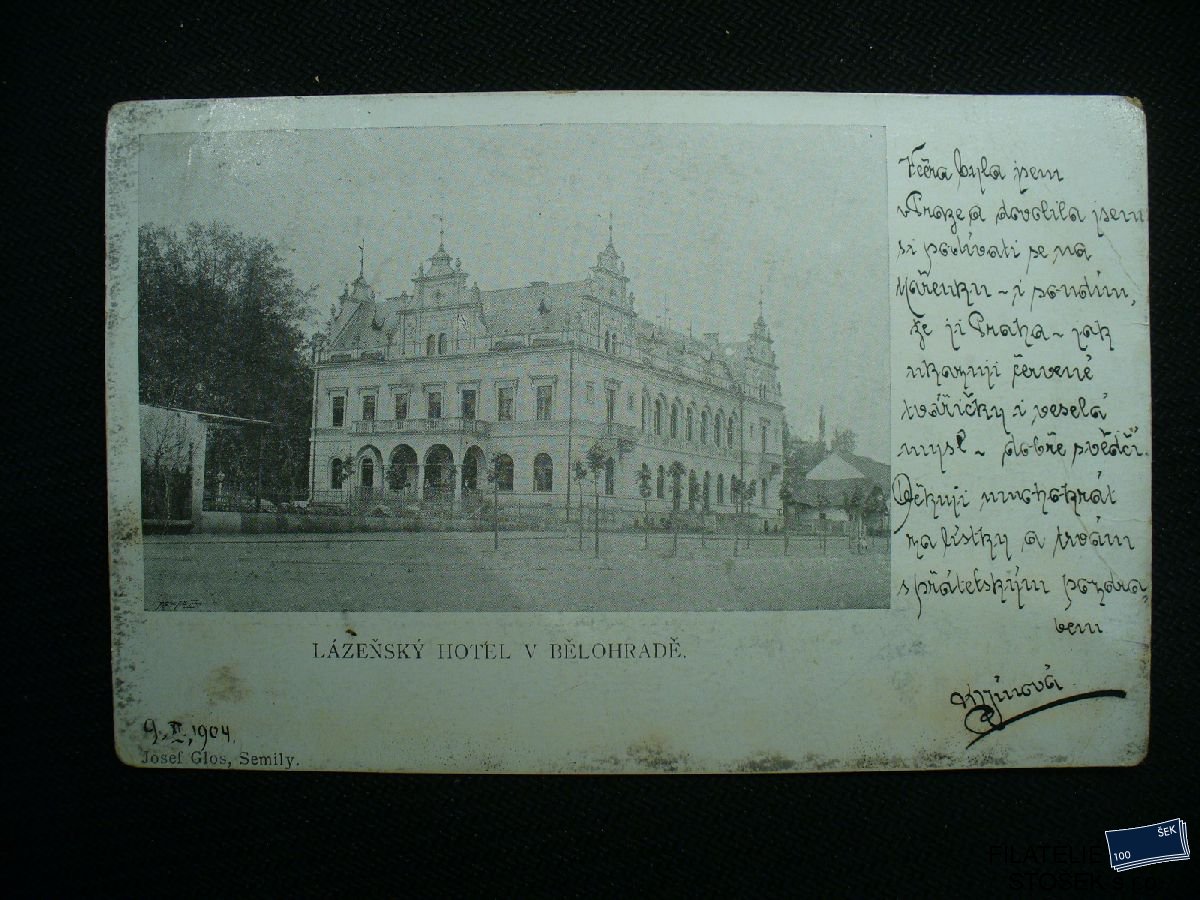 Včera byla jsem
v Praze a dovolila jsem
si podívati se na
Mařenku – i soudím,
že jí Praha – jak
ukazují červené
tvářičky i veselá
mysl – dobře svědčí.
Děkuji mnohokrát
za lístky a trvám
s přátelským pozdra
vem
LÁZEŇSKÝ HOTEL V BĚLOHRADĚ.
9. II. 1904.
Josef Glos, Semily.
100 ŠEK
FILATELIE
STOSEK